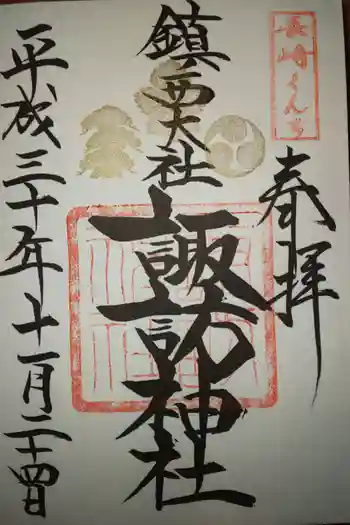 長崎くんち
奉拝
鎮西大社
諏訪神社
平成三十年十一月二十四日